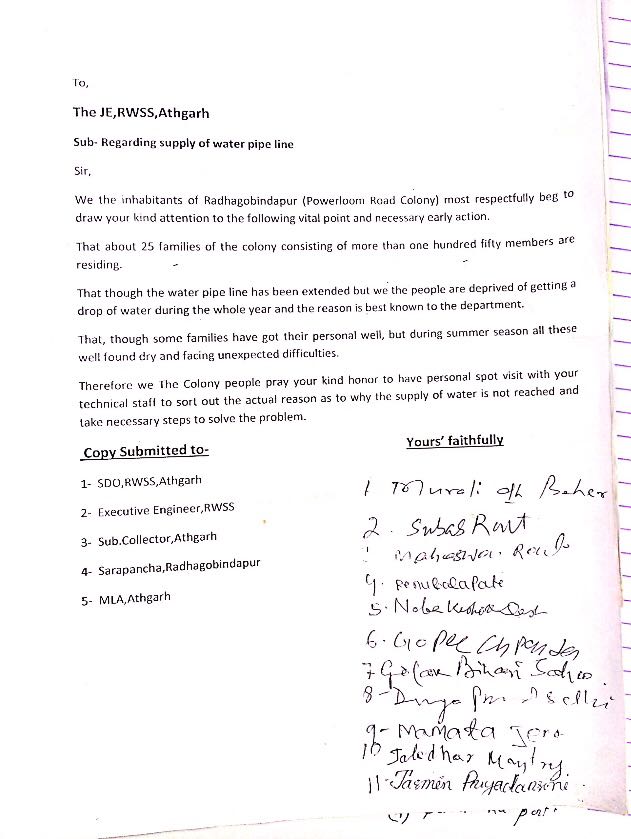 To,
The JE,RWSS,Athgarh
Sub- Regarding supply of water pipe line
Sir,
We the inhabitants of Radhagobindapur (Powerloom Road Colony) most respectfully beg to
draw your kind attention to the following vital point and necessary early action.
That about 25 families of the colony consisting of more than one hundred fifty members are
residing.
That though the water pipe line has been extended but we the people are deprived of getting a
drop of water during the whole year and the reason is best known to the department.
That, though some families have got their personal well, but during summer season all these
well found dry and facing unexpected difficulties.
Therefore we The Colony people pray your kind honor to have personal spot visit with your
technical staff to sort out the actual reason as to why the supply of water is not reached and
take necessary steps to solve the problem.
Copy Submitted to-
1- SDO,RWSS,Athgarh
2- Executive Engineer,RWSS
3- Sub.Collector,Athgarh
4- Sarapancha,Radhagobindapur
5- MLA,Athgarh
Yours' faithfully
1
2. Subas Rout
4.
5. Naba
6.
7 Bihari
8-
9- Mamata
10 Maytry
11- Jasmin Priyadarsini